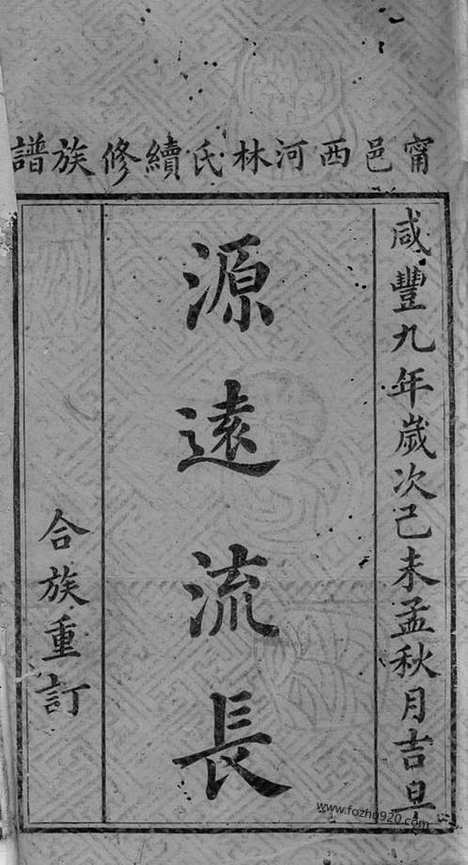 甯邑西河林氏續修族譜
咸豐九年歲次己未孟秋月吉旦
源遠流長
合族重訂
www.fozhu920.com